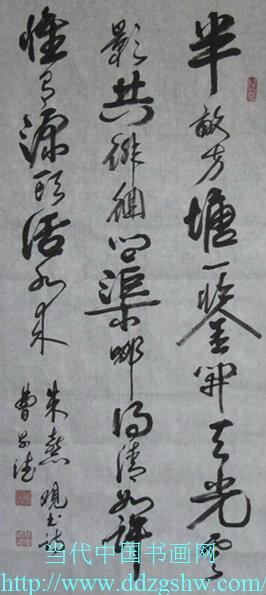 半畝方塘一鑒開天光雲
影共徘徊問渠哪得清如許
惟有源頭活水來
朱熹觀書詩
曹
当代中国书画网
http://www.ddzgshw.com/